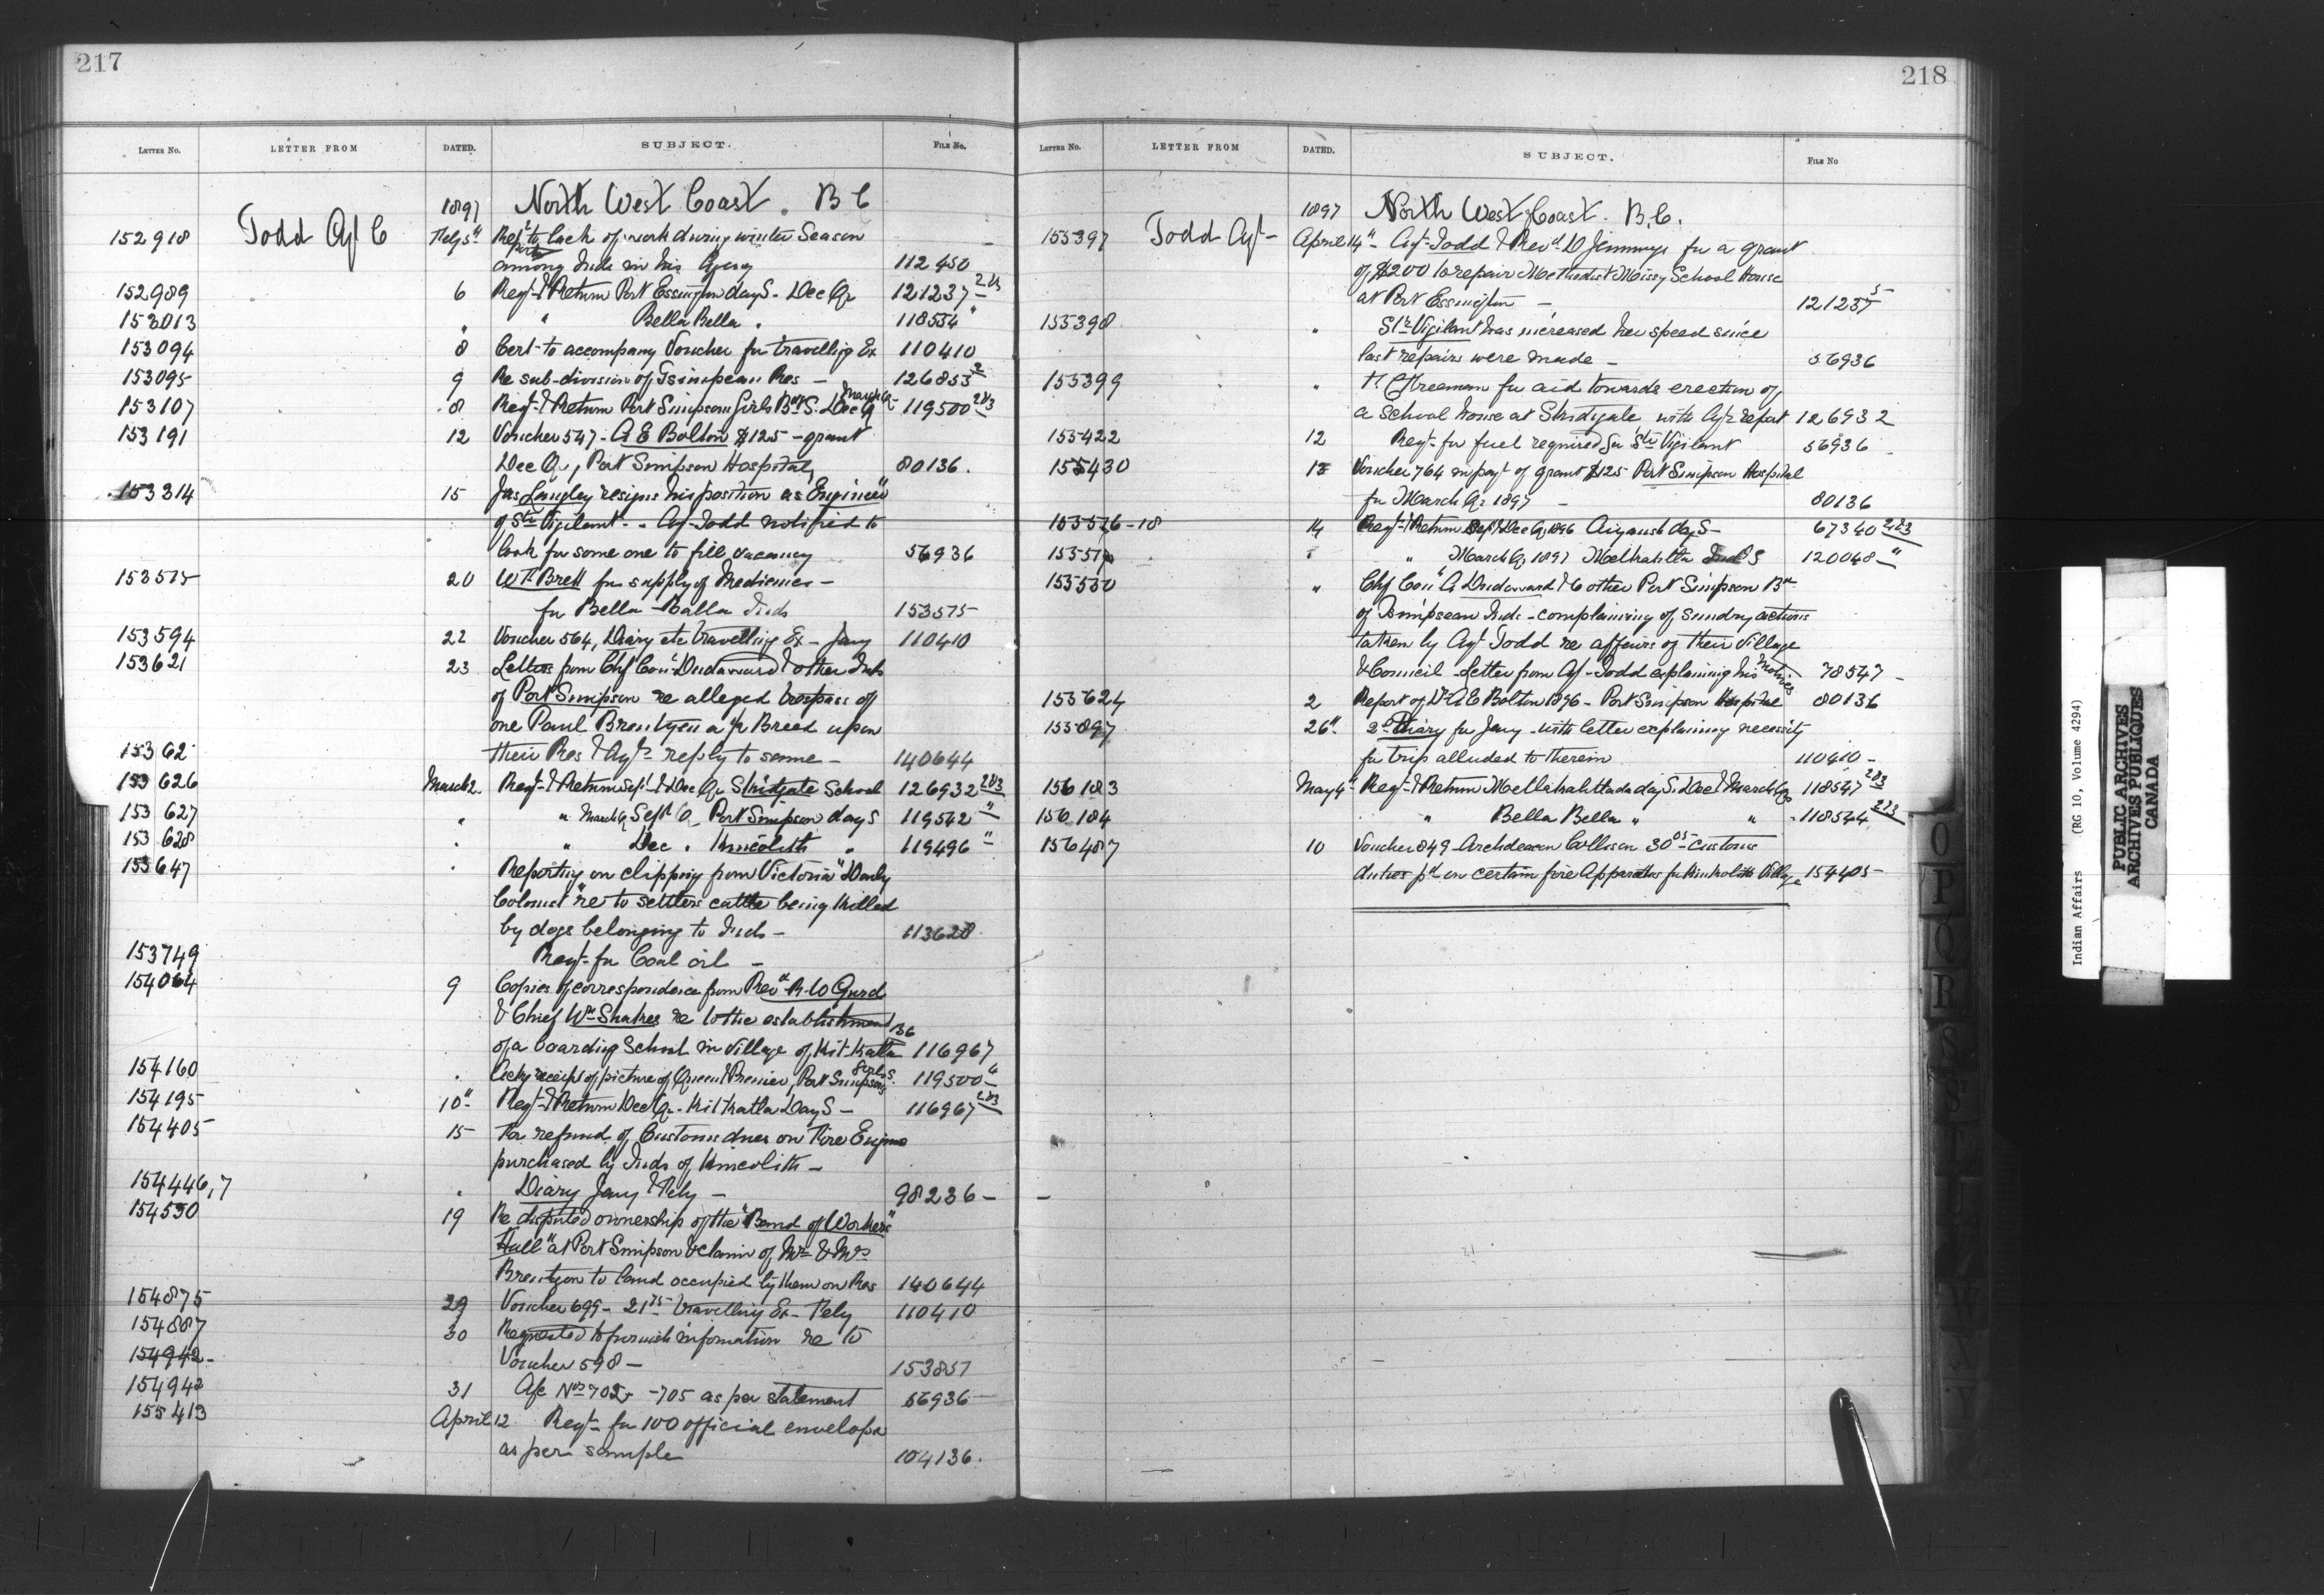 217
LETTER NO. LETTER FROM DATED. SUBJECT. FILE NO.
1897 North West Coast. B C
152918 Todd Agt C Feby 5" Rept to lack of work during winter Season
among Inds in his Agency 112450
152989 6 Regt & Return Port Essington day S - Dec Qr 121237 2&3
153013 " " Bella Bella " 118534 "
153094 8 Cert to accompany Voucher for travelling Ex 110410
153095 9 Re sub-division of Tsimpean Res - 126853 2
153107 8 Regt & Return Port Simpson Girls Bdg S. Dec Q March Qr 119500 2&3
153191 12 Voucher 547 - A E Bolton $125 - grant
Dec Qr, Port Simpson Hospital, 80136.
153314 15 Jas Langley resigns his position as Engineer
of Str Vigilant - Agt Todd notified to
look for some one to fill vacancy 56936
153575 20 Wm Brett for supply of Medicines -
for Bella-Balla Inds 153575
153594 22 Voucher 564, Diary etc travelling Ex - Jany 110410
153621 23 Letters from Chf Coun Dudoward & other Inds
of Port Simpson re alleged trespass of
one Paul Brentzen a ½ Breed upon
15362 their Res & Agts reply to same - 140644
153626 March 2. Regt & Return Sept & Dec Qr Skidgate School 126932 2&3
153627 " " March Q Sept Q Port Simpson day S 119542 "
153628 " " Dec " Kincolith " 119496 "
153647 " Reporting on clipping from Victoria "Daily
Colonist" re to settlers cattle being killed
by dogs belonging to Inds - 113628
153749 Reqt for Coal oil -
154064 9 Copies of correspondence from Revd R W Gurd
& Chief Wm Shakes re to the establishment
of a boarding School in village of Kit-Katla 116967
154160 " Ackg receipt of picture of Queen & Premier, Port Simpson Girls S. 119500 4
154195 10" Regt & Return Dec Qr - Kitkatla Day S - 116967 2&3
154405 15 For refund of Customs dues on Fire Engine
purchased by Inds of Kincolith -
154446,7 " Diary Jany & Feby - 98236 -
154530 19 Re disputed ownership of the "Band of Workers
Hall" at Port Simpson & claim of Mr & Mrs
Brentzen to land occupied by them on Res 140644
154875 29 Voucher 699 - 21 75 travelling Ex - Feby 110410
154887 30 Requested to furnish information re to
154942 - Voucher 598 - 153857
154942 31 A/c Nos 702 - 705 as per statement 56936
155413 April 12 Reqt for 100 official envelopes
as per sample 104136.
218
LETTER NO. LETTER FROM DATED. SUBJECT. FILE NO
1897 North West Coast. B.C.
155397 Todd Agt - April 14" Agt Todd & Revd D Jennings for a grant
of $200 to repair Methodist Missy School House
at Port Essington - 121237 5
155398 " Str Vigilant has increased her speed since
last repairs were made - 56936
155399 " for aid towards erection of
a School house at Skidgate with Agts report 126932
155422 12 Reqt for fuel required for Str Vigilant 56936
155430 13 Voucher 764 in payt of grant $125 Port Simpson Hospital
for March Qr 1897 - 80136
155516-18 14 Regt & Return Sept & Dec Q 1896 Aiyansh day S - 67340 2&3
" " March Q 1897 Metlakahtla Ind S 120048 "
155550 " Chf Coun A Dudoward & 6 other Port Simpson Bd
of Tsimpsean Inds - complaining of sundry actions
taken by Agt Todd re affairs of their Village
& Council - Letter from Agt Todd explaining his motives 78547 -
155624 2 Report of Dr A E Bolton 1896 - Port Simpson Hospital 80136
155897 26" Diary for Jany - with letter explaining necessity
for trip alluded to therein 110410 -
156183 May 4" Regt & Return Metlakahtla day S. Dec & March Qrs 118547 2&3
156184 " Bella Bella " " 118544 2&3
156487 10 Voucher 849 Archdeacon Collison 30 05 customs
duties pd on certain fire Apparatus for Kinkolith Village 154405 -
O
P
Q
R
S
St
T
U
V
W
X
Y
Indian Affairs (RG 10, Volume 4294)
PUBLIC ARCHIVES
ARCHIVES PUBLIQUES
CANADA